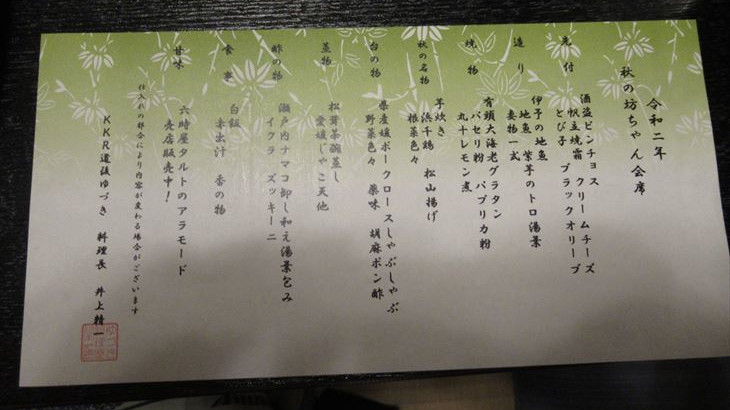 令和二年
秋の坊ちゃん会席
先付
酒盗ピンチョス クリームチーズ
帆立焼霜 ブラックオリーブ
とび子
造り
伊予の地魚
地魚 紫芋のトロ湯葉
妻物一式
焼物
有頭大海老グラタン
パセリ粉 パプリカ粉
丸十レモン煮
秋の名物
芋炊き
浜千鶏 松山揚げ
根菜色々
台の物
県産媛ポークロースしゃぶしゃぶ
野菜色々 薬味 胡麻ポン酢
蒸物
松茸茶碗蒸し
愛媛じゃこ天他
酢の物
瀬戸内ナマコ卸し和え湯葉包み
イクラ ズッキーニ
食事
白飯
赤出汁 香の物
甘味
六時屋タルトのアラモード
売店販売中！
仕入れの都合により内容が変わる場合がございます
KKR道後ゆづき 料理長 井上精一